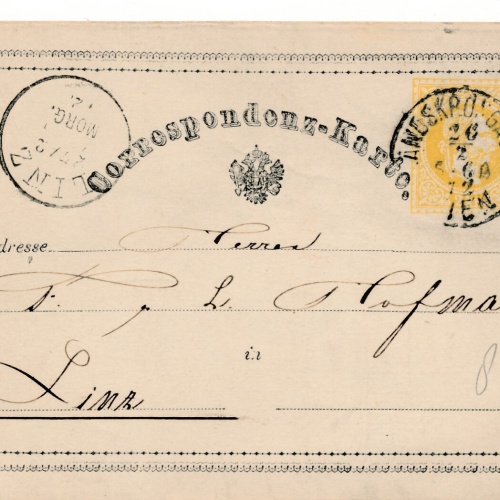 LINZ
MORG.
Correspondenz-Karte.
ANDSKRONG
26
2
72
IEN
dresse
Herren
F. & L. Hofma
in
Linz
8